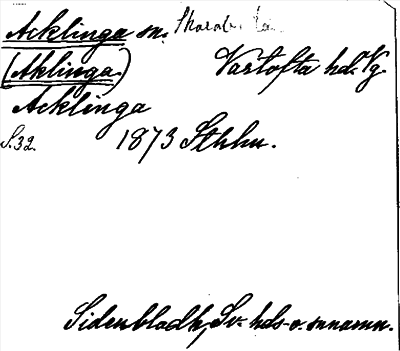 Acklinga sn.
(Aklinga) Vartofta hd. Vg.
Acklinga
S. 32. 1873 Sthlm.
Sidenbladh, Sv. hds- o. snnamn.